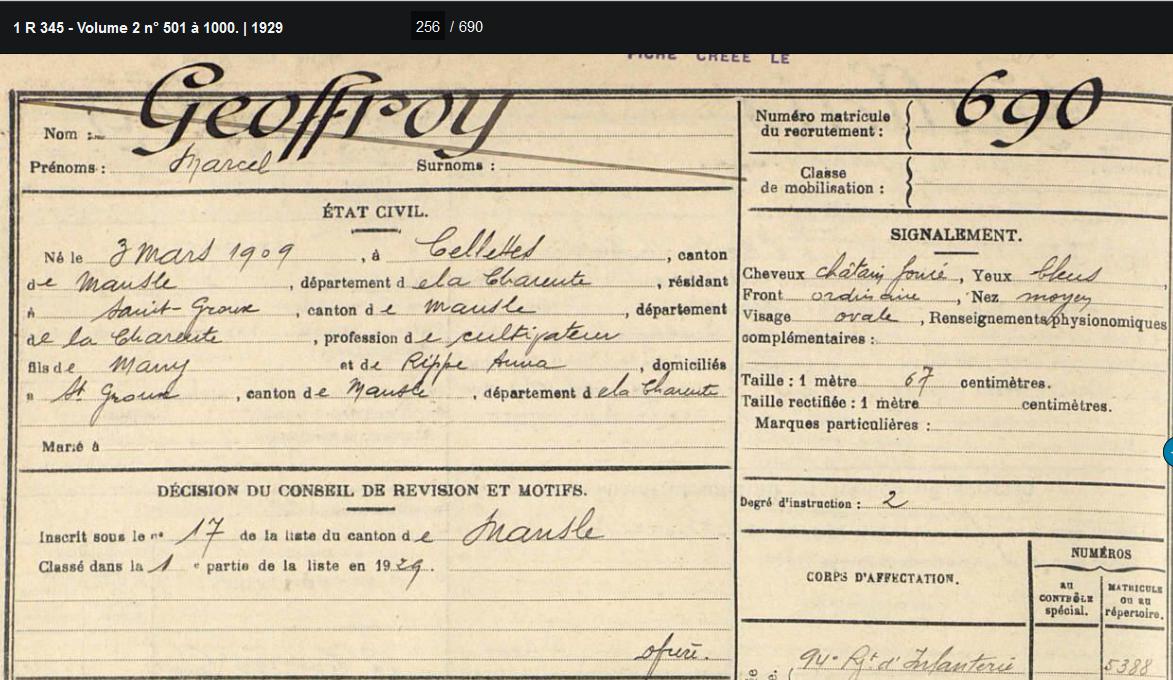 1 R 345 - Volume 2 n° 501 à 1000. | 1929 256 / 690
FICHE CRÉÉE LE
Nom : Geoffroy
Prénoms : Marcel Surnoms :
Numéro matricule du recrutement : 690
Classe de mobilisation :
ÉTAT CIVIL.
Né le 3 mars 1909, à Cellettes, canton
de Mansle, département de la Charente, résidant
à Saint-Groux, canton de Mansle, département
de la Charente, profession de cultivateur
fils de et de Rippe Anna, domiciliés
à St Groux, canton de Mansle, département de la Charente
Marié à
DÉCISION DU CONSEIL DE REVISION ET MOTIFS.
Inscrit sous le n° 17 de la liste du canton de Mansle
Classé dans la 1e partie de la liste en 1929.
SIGNALEMENT.
Cheveux châtain foncé, Yeux bleus,
Front ordinaire, Nez moyen
Visage ovale, Renseignements physionomiques
complémentaires :
Taille : 1 mètre 67 centimètres.
Taille rectifiée : 1 mètre centimètres.
Marques particulières :
Degré d'instruction : 2
CORPS D'AFFECTATION.
NUMÉROS
au CONTRÔLE spécial.
MATRICULE ou au répertoire.
94e Rgt d'Infanterie 5388